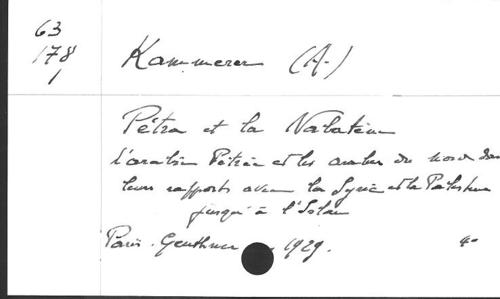 63
178
1
Kammerer (A.)
Pétra et la Nabatène
l'arabie Pétrée et les arabes du nord dans
leurs rapports avec la Syrie et la Palestine
jusqu'à l'Islam
Paris. Geuthner 1929. 4°